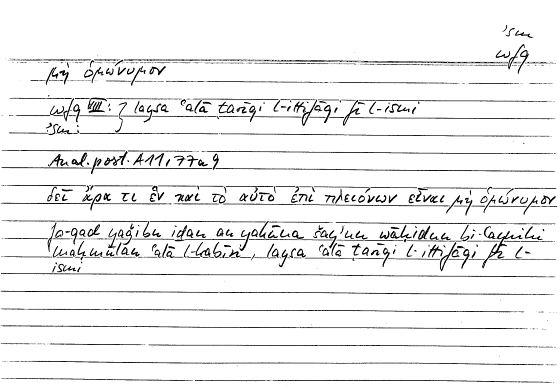 ʾsm
wfq
μὴ ὁμώνυμον
wfq VIII: } laysa ʿalā ṭarīqi l-ittifāqi fī l-ismi
ʾsm:
Anal. post. A 11, 77a9
δεῖ ἄρα τι ἓν καὶ τὸ αὐτὸ ἐπὶ πλειόνων εἶναι μὴ ὁμώνυμον
fa-qad yaǧibu iḏan an yakūna šayʾun wāḥidun bi-ʿaynihi
maḥmūlan ʿalā l-kaṯīri, laysa ʿalā ṭarīqi l-ittifāqi fī l-
ismi